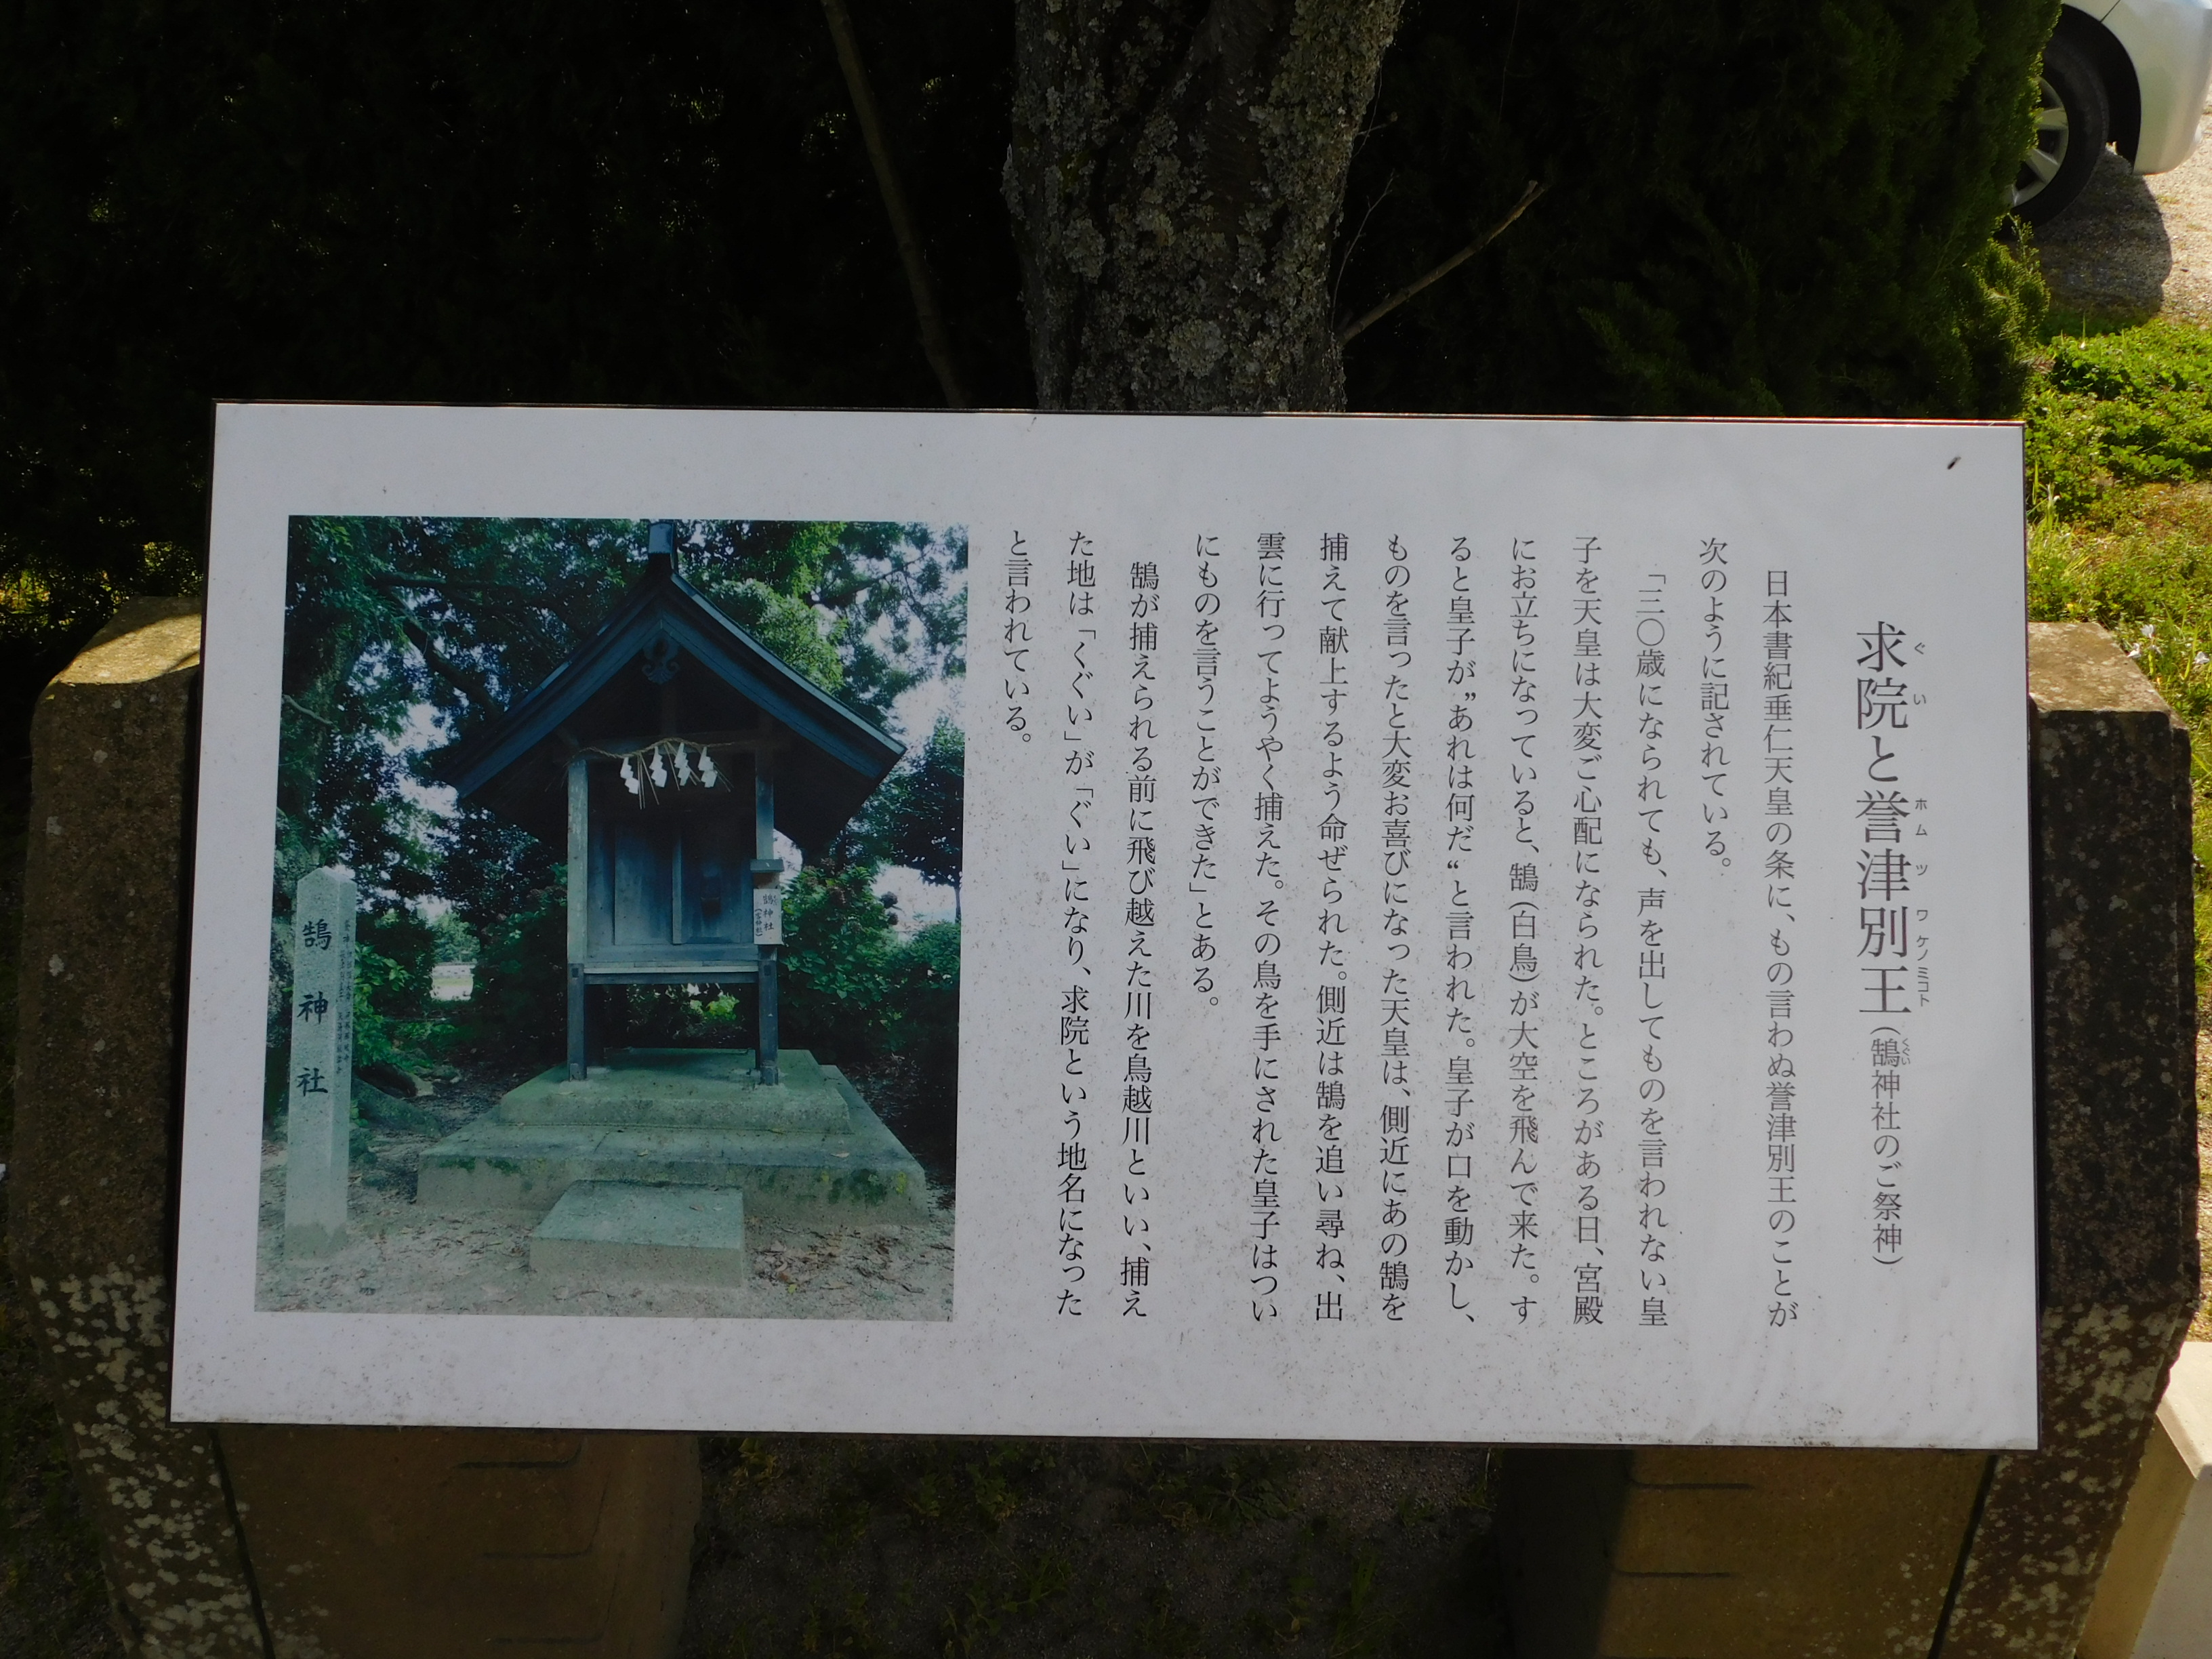 求院と誉津別王(鵠神社のご祭神)
ぐい
ホムツワケノミコト
くぐい
日本書紀垂仁天皇の条に、もの言わぬ誉津別王のことが
次のように記されている。
「三〇歳になられても、声を出してものを言われない皇
子を天皇は大変ご心配になられた。ところがある日、宮殿
にお立ちになっていると、鵠(白鳥)が大空を飛んで来た。す
ると皇子が〝あれは何だ〟と言われた。皇子が口を動かし、
ものを言ったと大変お喜びになった天皇は、側近にあの鵠を
捕えて献上するよう命ぜられた。側近は鵠を追い尋ね、出
雲に行ってようやく捕えた。その鳥を手にされた皇子はつい
にものを言うことができた」とある。
鵠が捕えられる前に飛び越えた川を鳥越川といい、捕え
た地は「くぐい」が「ぐい」になり、求院という地名になった
と言われている。
鵠神社
鵠神社